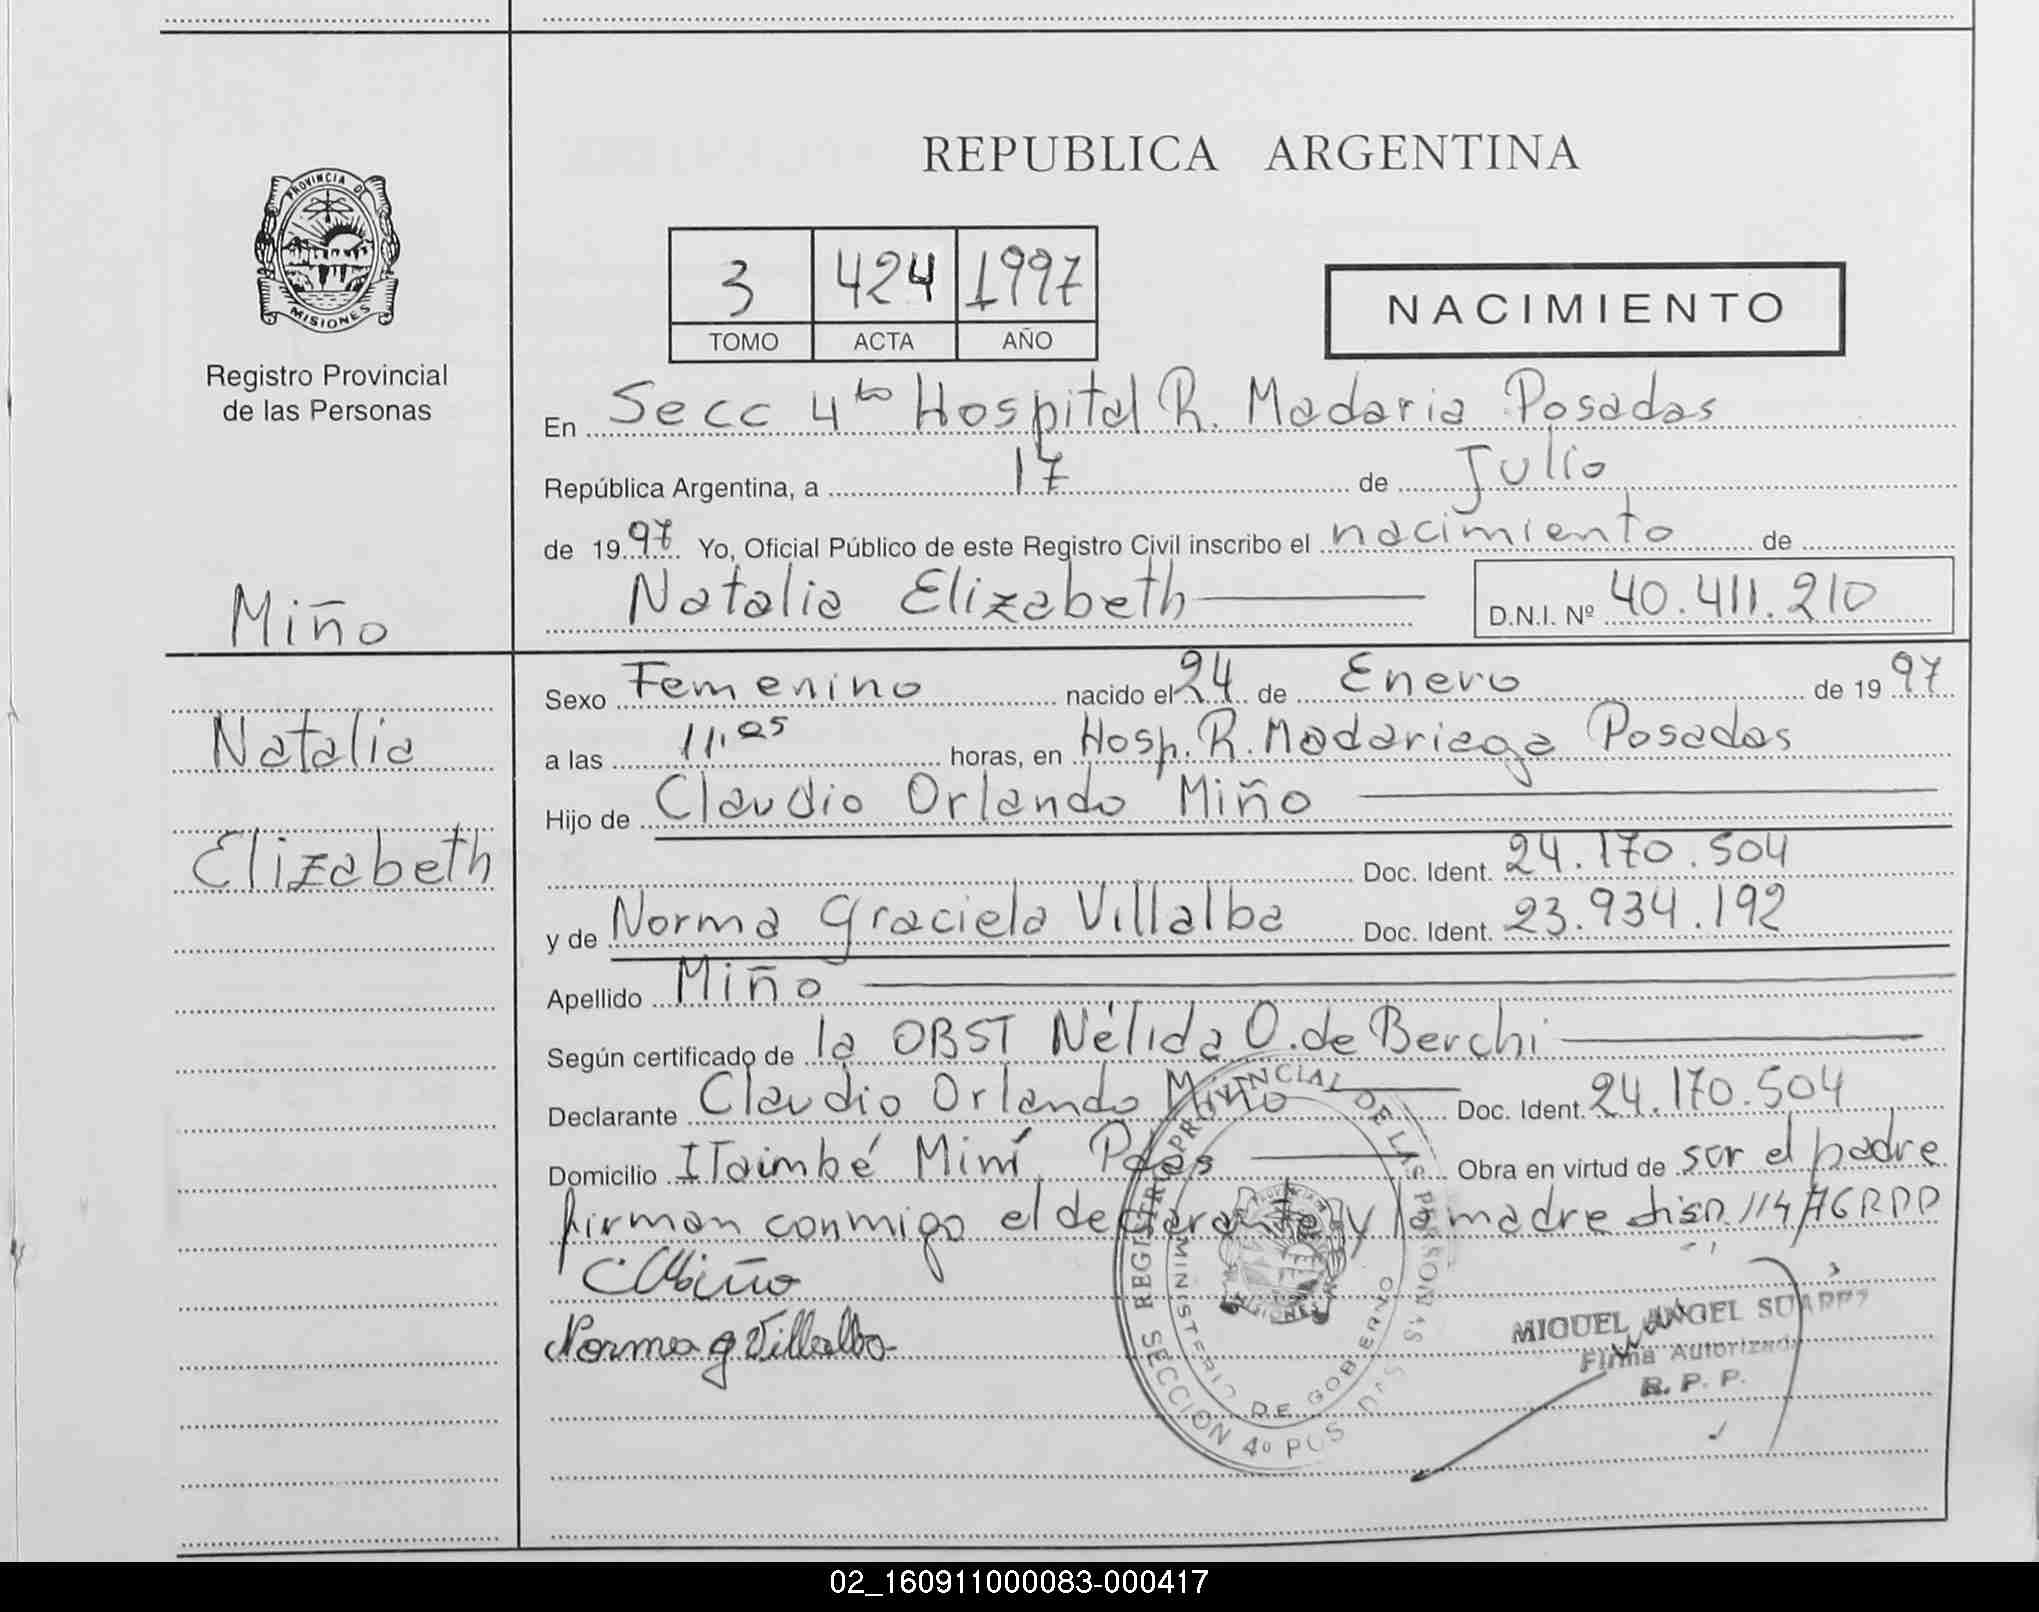 REPUBLICA ARGENTINA
PROVINCIA DE
MISIONES
Registro Provincial
de las Personas
3 424 1997
TOMO ACTA AÑO
NACIMIENTO
En Secc 4to Hospital R. Madaria Posadas
República Argentina, a 17 de Julio
de 1997 Yo, Oficial Público de este Registro Civil inscribo el nacimiento de
Natalia Elizabeth
D.N.I. Nº 40.411.210
Miño
Natalia
Elizabeth
Sexo Femenino nacido el 24 de Enero de 1997
a las 11,05 horas, en Hosp. R. Madariaga Posadas
Hijo de Claudio Orlando Miño
Doc. Ident. 24.170.504
y de Norma Graciela Villalba Doc. Ident. 23.934.192
Apellido Miño
Según certificado de la OBST Nélida O. de Berchi
Declarante Claudio Orlando Miño Doc. Ident. 24.170.504
Domicilio ITaimbé Miní Pdas Obra en virtud de ser el padre
firman conmigo el declarante y la madre disp. 114/76 RPP
C Miño
Norma G Villalba
REGISTRO PROVINCIAL DE LAS PERSONAS
SECCION 4º POSADAS
MINISTERIO DE GOBIERNO
MIGUEL ANGEL SUAREZ
Firma Autorizada
R. P. P.
02_160911000083-000417